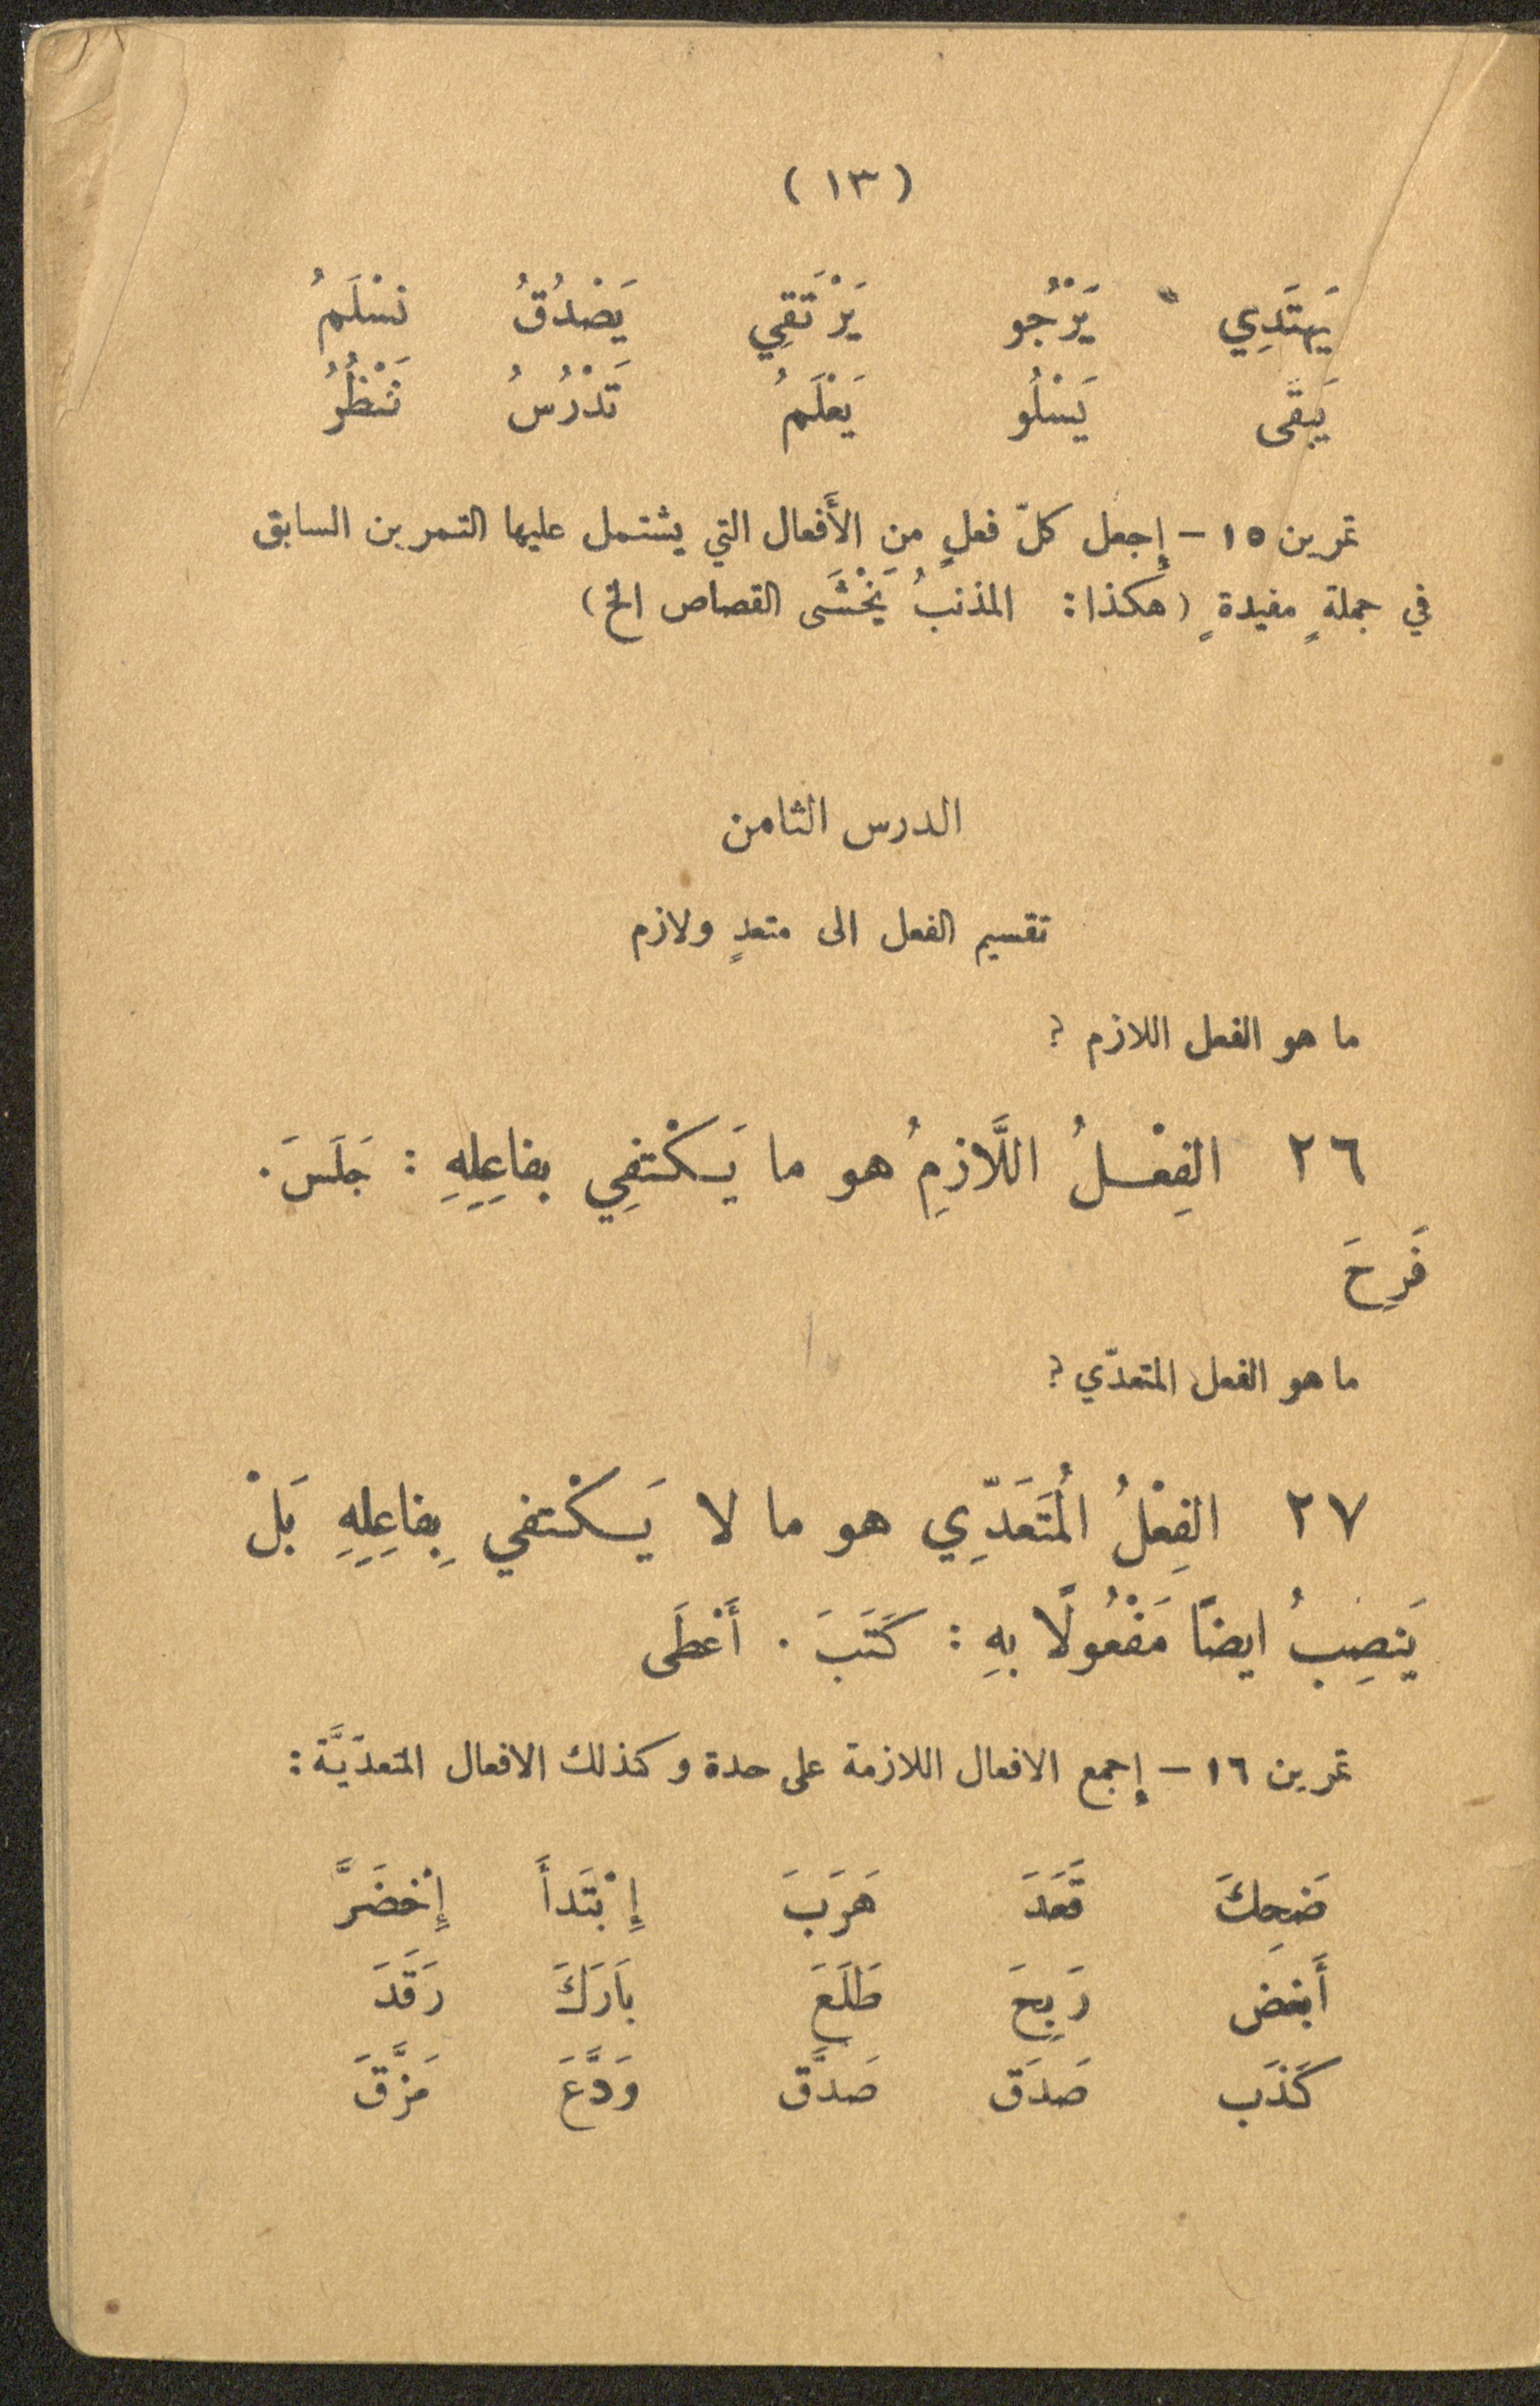 ( ١٣ )
يَهتَدِي يَرْجُو يَرْتَقِي يَصْدُقُ نَسْلَمُ
يَبقَى يَسْلُو يَعْلَمُ تَدْرُسُ نَنْظُرُ
تمرين ١٥ – إِجعل كلّ فعلٍ منِ الأَفعال التي يشتمل عليها التمرين السابق
في جملةٍ مفيدةٍ (هكذا: المذنبُ يَخْشَى القصاص الخ)
الدرس الثامن
تقسيم الفعل الى متعدٍ ولازم
ما هو الفعل اللازم ؟
٢٦ الفِعْلُ اللَّازِمُ هو ما يَكْتفِي بفاعِلِهِ : جَلَسَ .
فَرِحَ
ما هو الفعل المتعدّي ؟
٢٧ الفِعْلُ الُمتَعَدِّي هو ما لا يَكْتفي بِفاعِلِهِ بَلْ
يَنصِبُ ايضًا مَفْعُولًا بهِ : كَتَبَ . أَعْطَى
تمرين ١٦ – إِجمع الافعال اللازمة على حدة وكذلك الافعال المتعدّيَّة :
ضَحِكَ قَعَدَ هَرَبَ إِبْتَدأَ إِخْضَرَّ
أَبغض رَبِحَ طَلَعَ بَارَكَ رَقَدَ
كَذَب صَدَق صَدَّق وَدَّعَ مَزَّقَ